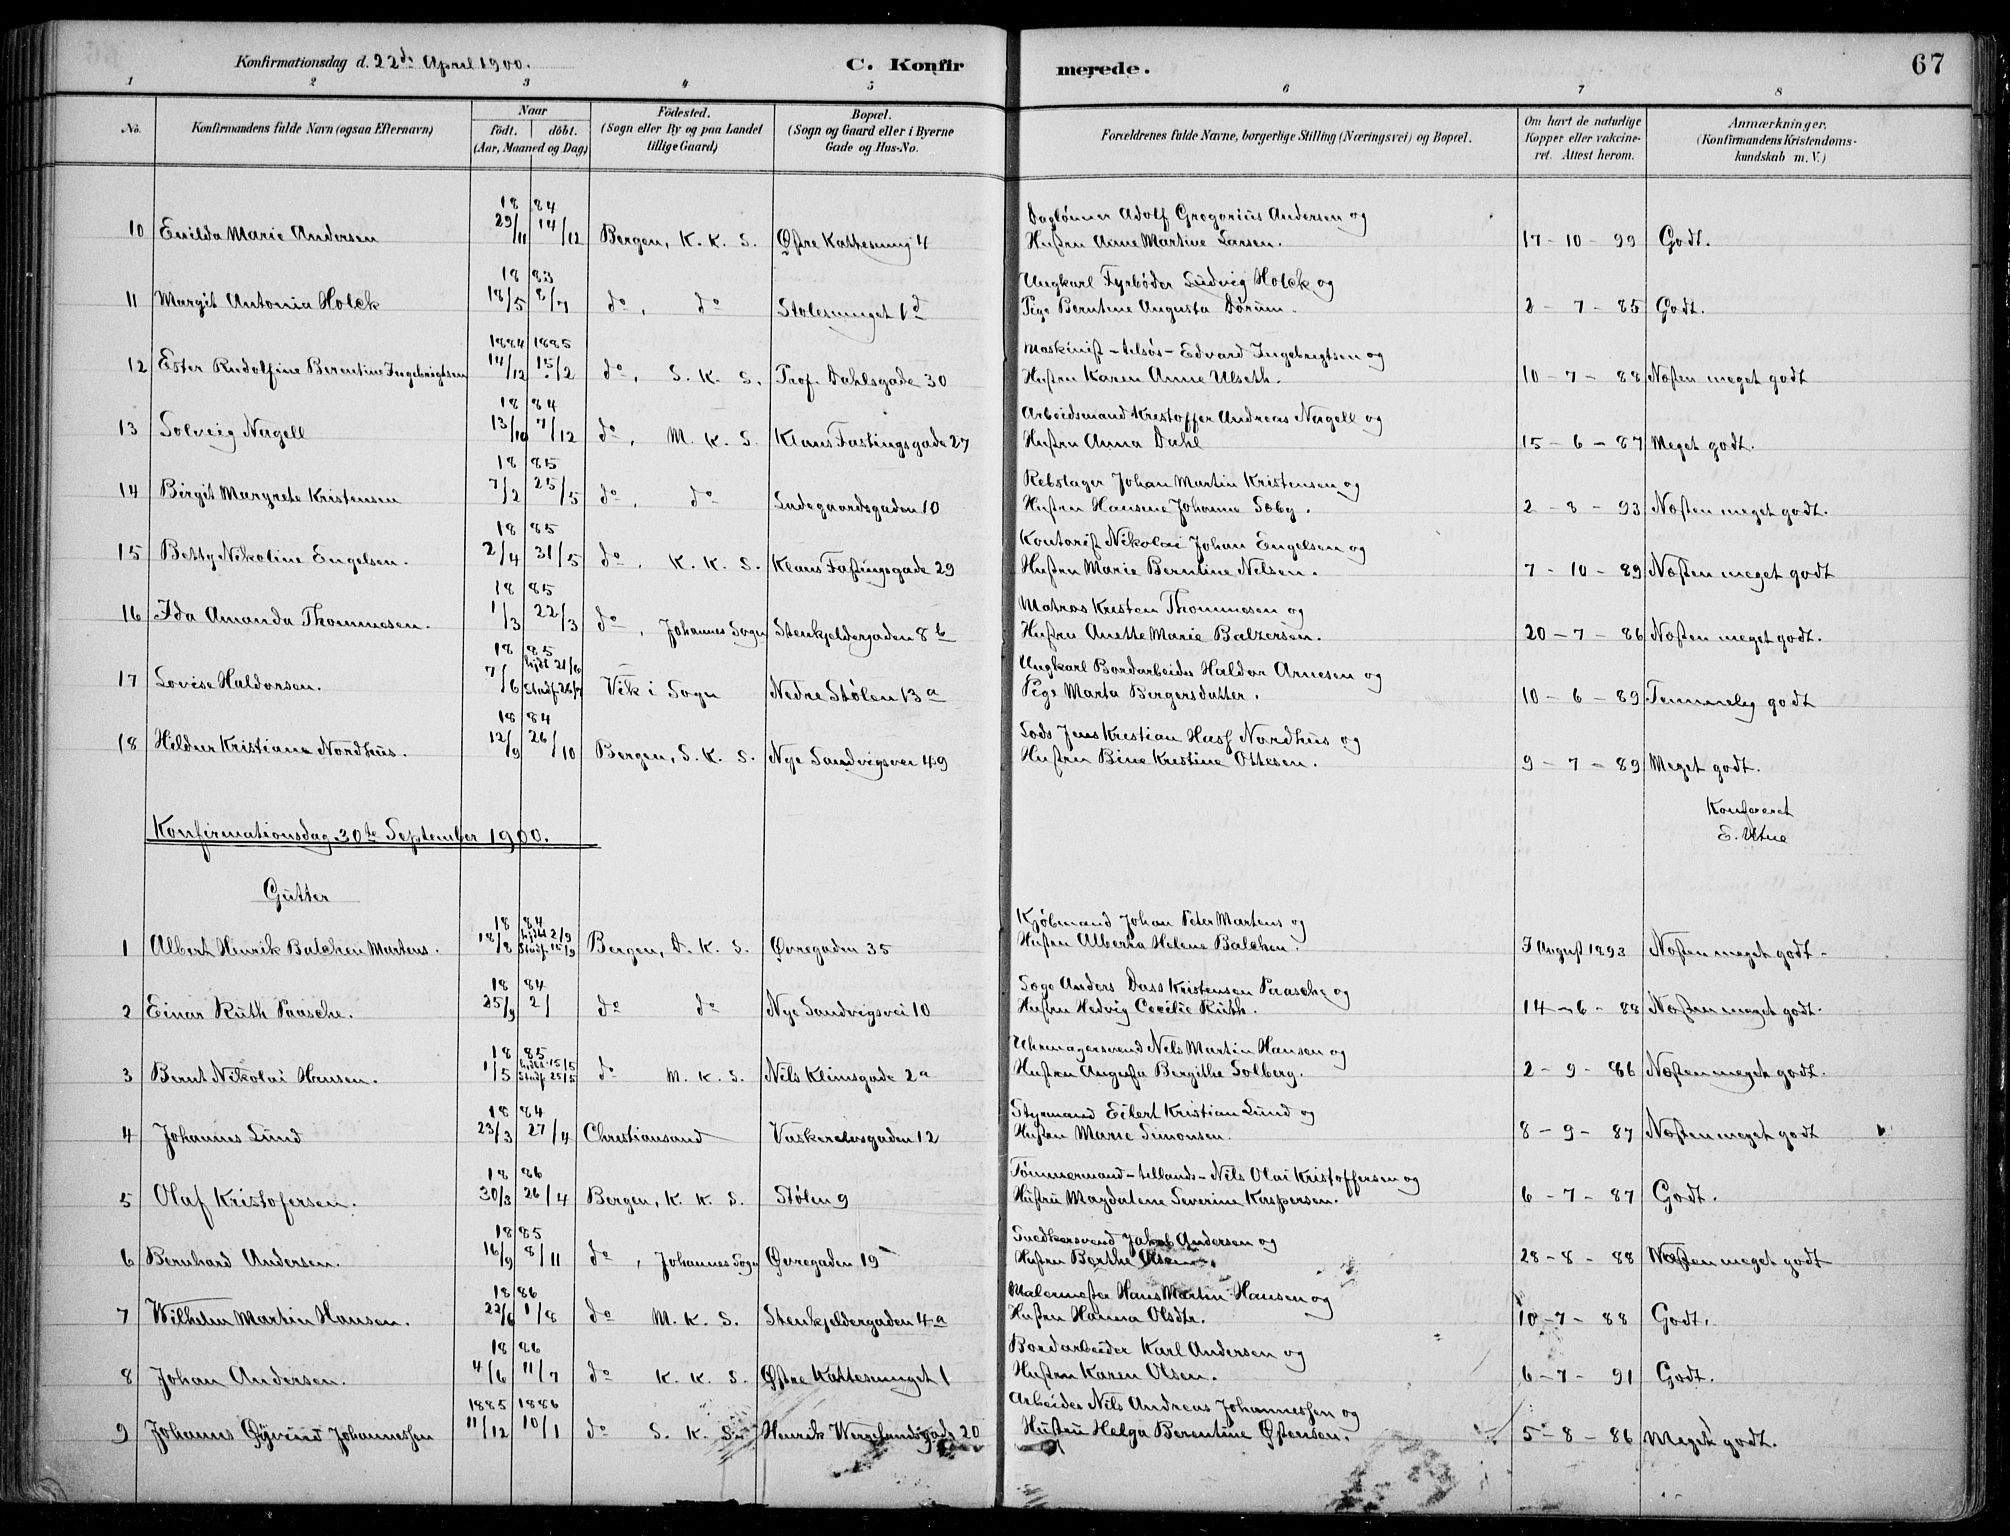 Konfirmationsdag d. 22de April 1900. C. Konfirmerede. 67
1 2 3 4 5 6 7 8
No. Konfirmandens fulde Navn (ogsaa Efternavn) Naar födt. döbt. (Aar, Maaned og Dag) Födested. (Sogn eller By og paa Landet tillige Gaard) Bopæl. (Sogn og Gaard eller i Byerne Gade og Hus-No. Forældrenes fulde Navne, borgerlige Stilling (Næringsvei) og Bopæl. Om havt de naturlige Kopper eller vakcineret. Attest herom. Anmærkninger. (Konfirmandens Kristendomskundskab m. V.)
18 84 Daglønner Adolf Gregorius Andersen og
10 Enilda Marie Andersen 29/11 14/12 Bergen, K. K. S. Østre Kattesmug 4 Hustru Anne Martine Larsen. 17-10-99 Godt.
18 83 Ungkarl Fyrbøder Ludvig Holck og
11 Margit Antonia Holck 18/5 8/7 do, do Stølesmuget 1d Pige Berntine Augusta Dørum. 2-7-85 Godt.
1884 1885 Maskinist -tilsøs- Edvard Ingebrigtsen og
12 Ester Rudolfine Berentine Ingebrigtsen 14/12 15/2 do, S. K. S. Prof. Dahlsgade 30 Hustru Karen Anne Ulseth. 10-7-88 Næsten meget godt
18 84 Arbeidsmand Kristoffer Andreas Nagell og
13 Solveig Nagell 13/10 7/12 do, M. K. S. Klaus Fastingsgade 27 Hustru Anna Dahl 15-6-87 Meget godt.
18 85 Rebslager Johan Martin Kristensen og
14 Birgit Margrete Kristensen 7/2 25/5 do, do Ladegaardsgaden 10 Hustru Hansine Johanne Soby. 2-8-93 Næsten meget godt.
18 85 Kontorist Nikolai Johan Engelsen og
15 Betty Nikoline Engelsen. 2/4 31/5 do, K. K. S. Klaus Fastingsgade 29 Hustru Marie Berntine Nilsen. 7-10-89 Næsten meget godt
18 85 Matros Kristen Thommesen og
16 Ida Amanda Thommesen. 1/3 22/3 do, Johannes Sogn Stenkjeldergaden 8b Hustru Anette Marie Balzersen. 20-7-86 Næsten meget godt.
18 85 Ungkarl Bordarbeider Haldor Arnesen og
17 Lovise Haldorsen. 7/6 hjdbt 21/6 Stadf. 26/7 Vik i Sogn Nedre Stølen 13a Pige Marta Bergersdatter. 10-6-89 Temmelig godt
18 84 Lods Jens Kristian Hass Nordhus og
18 Hildur Kristiane Nordhus. 12/9 26/10 Bergen, S. K. S. Nye Sandvigsvei 49 Hustru Bine Kristine Ottesen. 9-7-89 Meget godt.
Konfereret
Konfirmationsdag 30te September 1900. E. Utne
Gutter
18 84 Kjøbmand Johan Peter Martens og
1 Albert Henrik Balchen Martens. 18/8 hjdbt 2/9 Stadf. 15/9 Bergen, D. K. S. Øvregaden 35 Hustru Alberta Helene Balchen. I August 1893 Næsten meget godt-
18 84 Anders Dass Kristensen Paasche og
2 Einar Ruth Paasche. 25/9 2/ do do Nye Sandvigsvei 10 Hustru Hedvig Cecilie Ruth. 14-6-88 Næsten meget godt.
18 85 Uhrmagersvend Nils Martin Hansen og
3 Bernt Nikolai Hansen. 1/5 hjdbt 15/5 Stadf. 25/5 do M. K. S. Nils Klimsgade 2a Hustru Augusta Bergithe Solberg. 2-9-86 Næsten meget godt.
18 84 Styrmand Eilert Kristian Lund og
4 Johannes Lund 23/3 27/4 Christiansand Vaskerelvsgaden 12 Hustru Marie Simonsen. 8-9-87 Næsten meget godt
18 86 Tømmermand -tillands- Nils Olai Kristoffersen og
5 Olaf Kristofersen. 30/3 26/4 Bergen, K. K. S. Stølen 9 Hustru Magdalene Severine Kaspersen. 6-7-87 Godt.
18 85 Snedkersvend Jakob Andersen og
6 Bernhard Andersen. 16/9 8/11 do, Johannes Sogn Øvregaden 19 Hustru Berthe Olsen. 28-8-88 Næsten meget godt
18 86 Malermester Hans Martin Hansen og
7 Wilhelm Martin Hansen. 22/6 1/8 do M. K. S. Stenkjeldergaden 4a Hustru Hanna Olsdtr. 10-7-88 Godt.
18 86 Bordarbeider Karl Andersen og
8 Johan Andersen. 4/6 11/7 do K. K. S. Østre Kattesmuget 1 Hustru Karen Olsen. 6-7-91 Godt.
1885 1886 Arbeider Nils Andreas Johannessen og
9 Johannes Øyvind Johannessen 11/12 10/1 do S. K. S. Henrik Wergelandsgade 20 Hustru Helga Berentine Østensen. 5-8-86 Meget godt.